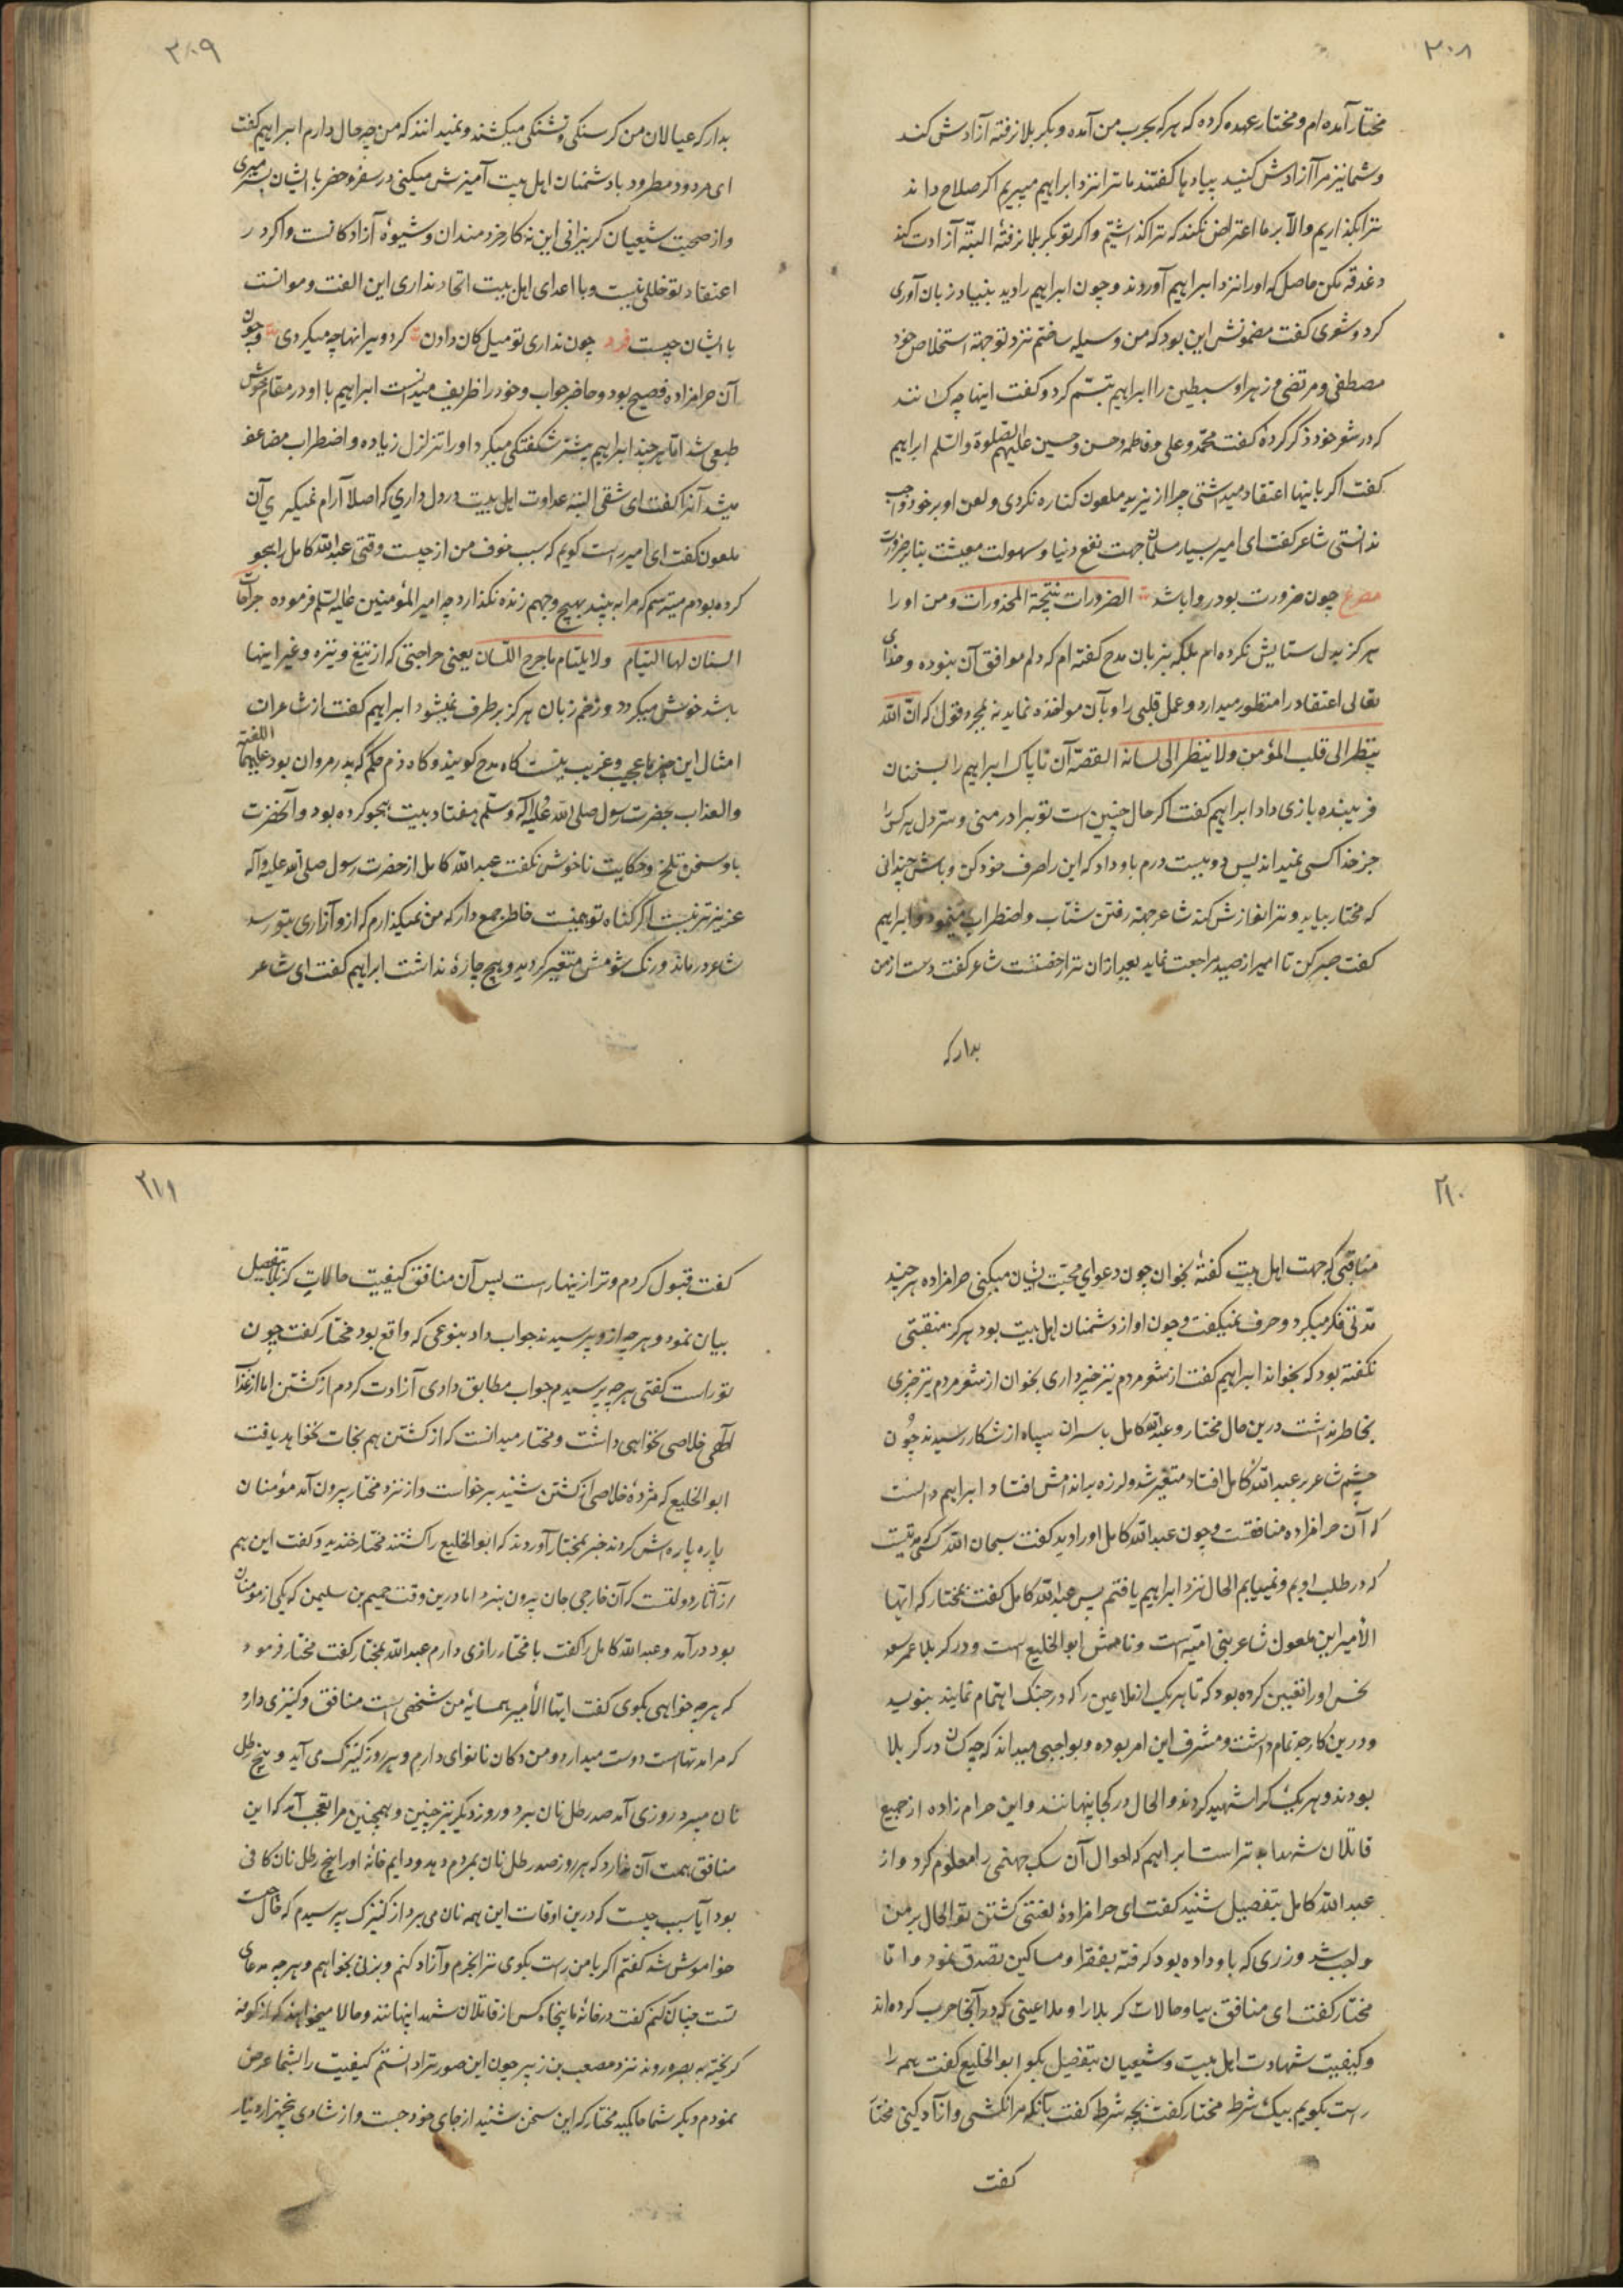 ۳۰۸
مختار آمده‌ام و مختار عهده کرده که هر که بحرب من آمده و بکربلا نرفته آزادش کند
و شما نیز مرا آزادش کنید پیادها گفتند ما ترا نزد ابراهیم میبریم اگر صلاح داند
ترا بگذاریم والا بر ما اعتراض نکند که ترا گذاشتیم و اگر تو بکربلا نرفتهٔ البته آزادت کند
دغدغه مکن حاصل که اورا نزد ابراهیم آوردند و چون ابراهیم را دید بنیاد زبان آوری
کرد و شعری گفت مضمونش این بود که من وسیله ساختم نزد تو جهة استخلاص خود
مصطفی و مرتضی و زهرا و سبطین را ابراهیم تبسم کرد و گفت اینها چه کسانند
که در شعر خود ذکر کردهٔ گفت محمد و علی و فاطمه و حسن و حسین علیهم الصلوة والسلم ابراهیم
گفت اگر باینها اعتقاد میداشتی چرا از یزید ملعون کناره نکردی و لعن او بر خود واجب
ندانستی شاعر گفت ای امیر بسیار مسلمان جهت نفع دنیا و سهولت معیشت بنابر ضرورت
مصرع چون ضرورت بود روا باشد الضرورات نتیجة المحذورات و من اورا
هرگز بدل ستایش نکرده‌ام بلکه بزبان مدح گفته‌ام که دلم موافق آن نبوده و خدای
تعالی اعتقاد را منظور میدارد و عمل قلبی را و بآن مواخذه نماید نه بمجرد قول که ان الله
ینظر الی قلب المؤمن ولا ینظر الی لسانه القصه آن ناپاک ابراهیم را بسخنان
فریبنده بازی داد ابراهیم گفت اگر حال چنین است تو برادر منی و سر دل هر کس را
جز خدا کسی نمیداند پس دویست درم باو داد که این را صرف خود کن و باش چندانی
که مختار بیاید و ترا نوازش کند شاعر جهة رفتن شتاب و اضطراب مینمود و ابراهیم
گفت صبر کن تا امیر از صید مراجعت نماید بعد از آن ترا رخصتست شاعر گفت دست از من
بدار که
۳۰۹
بدار که عیالان من گرسنگی و تشنگی میکشند و نمیدانند که من چه حال دارم ابراهیم گفت
ای مردود مطرود با دشمنان اهل بیت آمیزش میکنی و در سفر و حضر با ایشان بسر میبری
و از صحبت شیعیان گریزانی این نه کار خردمندان و شیوهٔ آزادگانست و اگر در
اعتقاد تو خللی نیست و با اعدای اهل بیت اتحاد نداری این الفت و موانست
با ایشان چیست فرد چون نداری تو میل کان دادن کرد ویرانها چه میکردی و چون
آن حرامزاده فصیح بود و حاضر جواب و خود را ظریف میدانست ابراهیم با او در مقام خوش
طبعی شد اما هر چند ابراهیم بیشتر شکفتگی میکرد اورا تزلزل زیاده و اضطراب مضاعف
میشد آنرا گفت ای شقی البته عداوت اهل بیت در دل داری که اصلا آرام نمیگیری آن
ملعون گفت ای امیر راست گویم که سبب خوف من از چیست وقتی عبدالله کامل را هجو
کرده بودم میترسم که مرا به بیند بهیچ وجهم زنده نگذارد چه امیر المؤمنین علیه السلم فرموده جراحات
السنان لها التیام ولا یلتام ما جرح اللسان یعنی جراحتی که از تیغ و نیزه و غیر اینها
باشد خوش میگردد و زخم زبان هرگز برطرف نمیشود ابراهیم گفت از شاعران
امثال این چیزها عجیب و غریب نیست گاه مدح گویند و گاه ذم حکم که پدر مروان بود علیهما اللعنة
والعذاب بحضرت رسول صلی الله علیه و آله وسلم هفتاد بیت هجو کرده بود و آنحضرت
باو سخن تلخ و حکایت ناخوش نگفت عبدالله کامل از حضرت رسول صلی الله علیه و آله
عزیزتر نیست اگر گناه تو همینست خاطر جمع دار که من نمیگذارم که از و آزاری بتو رسد
شاعر درماند و رنگ شومش متغیر گردید و هیچ چارهٔ نداشت ابراهیم گفت ای شاعر
۲۱۰
مناقبی که جهت اهل بیت گفتهٔ بخوان چون دعوای محبت ایشان میکنی حرامزاده هر چند
مدتی فکر میکرد و حرف نمیگفت و چون او از دشمنان اهل بیت بود هرگز منقبتی
نگفته بود که بخواند ابراهیم گفت از شعر مردم نیز خبر داری بخوان از شعر مردم نیز چیزی
بخاطر نداشت درین حال مختار و عبدالله کامل با سران سپاه از شکار رسیدند چون
چشم شاعر بر عبدالله کامل افتاد متغیر شد و لرزه بر اندامش افتاد ابراهیم دانست
که آن حرامزاده منافقست و چون عبدالله کامل اورا دید گفت سبحان الله کسی مدتیست
که در طلب اویم و نمییابم الحال نزد ابراهیم یافتم پس عبدالله کامل گفت بمختار که ایها
الأمیر این ملعون شاعر بنی امیه است و نامش ابوالخلیع است و در کربلا عمر سعد
نحس اورا تعیین کرده بود که تا هر یک از ملاعین را که در جنک اهتمام نمایند بنویسد
و درین کار جد تمام داشت و مشرف این امر بوده و بواجبی میداند که چه کسان در کربلا
بودند و هر یک کرا شهید کردند و الحال در کجا پنهانند و این حرام زاده از جمیع
قاتلان شهدا بدتر است ابراهیم که احوال آن سک جهنمی را معلوم کرد و از
عبدالله کامل بتفصیل شنید گفت ای حرامزادهٔ لعنتی کشتن تو الحال بر من
واجب شد و زری که باو داده بود گرفته بفقرا و مساکین تصدق نمود و اما
مختار گفت ای منافق بیا و حالات کربلا را و ملاعینی که در آنجا حرب کرده‌اند
و کیفیت شهادت اهل بیت و شیعیان بتفصیل بگو ابوالخلیع گفت همه را
راست بگویم بیک شرط مختار گفت بچه شرط گفت بآنکه مرا نکشی و آزاد کنی مختار
گفت
۲۱۱
گفت قبول کردم و ترا زینهار است پس آن منافق کیفیت حالات کربلا بتفصیل
بیان نمود و هر چه از و پرسیدند جواب داد بنوعی که واقع بود مختار گفت چون
تو راست گفتی هر چه پرسیدم جواب مطابق دادی آزادت کردم از کشتن اما از عذاب
الهی خلاصی نخواهی داشت و مختار میدانست که از کشتن هم نجات نخواهد یافت
ابوالخلیع که مژدهٔ خلاصی از کشتن شنید برخواست و از نزد مختار بیرون آمد مؤمنان
پاره پاره‌اش کردند خبر بمختار آوردند که ابوالخلیع را کشتند مختار خندید و گفت این هم
از آثار دولتست که آن خارجی جان بیرون نبرد اما درین وقت حمیم بن سلیمن که یکی از مؤمنان
بود در آمد و عبدالله کامل را گفت با مختار رازی دارم عبدالله بمختار گفت مختار فرمود
که هر چه خواهی بگوی گفت ایها الأمیر همسایهٔ من شخصی است منافق و کنیزی دارد
که مرا مدتهاست دوست میدارد و من دکان نانوای دارم و هر روز کنیزک می آید و پنج رطل
نان میبرد روزی آمد صد رطل نان ببرد و روز دیگر نیز چنین و همچنین مرا تعجب آمد که این
منافق همت آن ندارد که هر روز صد رطل نان بمردم دهد و دایم خانهٔ اورا پنج رطل نان کافی
بود آیا سبب چیست که درین اوقات این همه نان می برد از کنیزک پرسیدم که حال چیست
خواموش شد گفتم اگر با من راست بگوی ترا بخرم و آزاد کنم و بزنی بخواهم و هر چه مدعای
تست چنان کنم گفت در خانهٔ ما پنجاه کس از قاتلان شهدا پنهانند و حالا میخواهند که از کوفه
گریخته به بصره روند نزد مصعب بن زبیر چون این صورت را دانستم کیفیت را بشما عرض
نمودم دیگر شما حاکمید مختار که این سخن شنید از جای خود جست و از شادی پنجهزار دینار